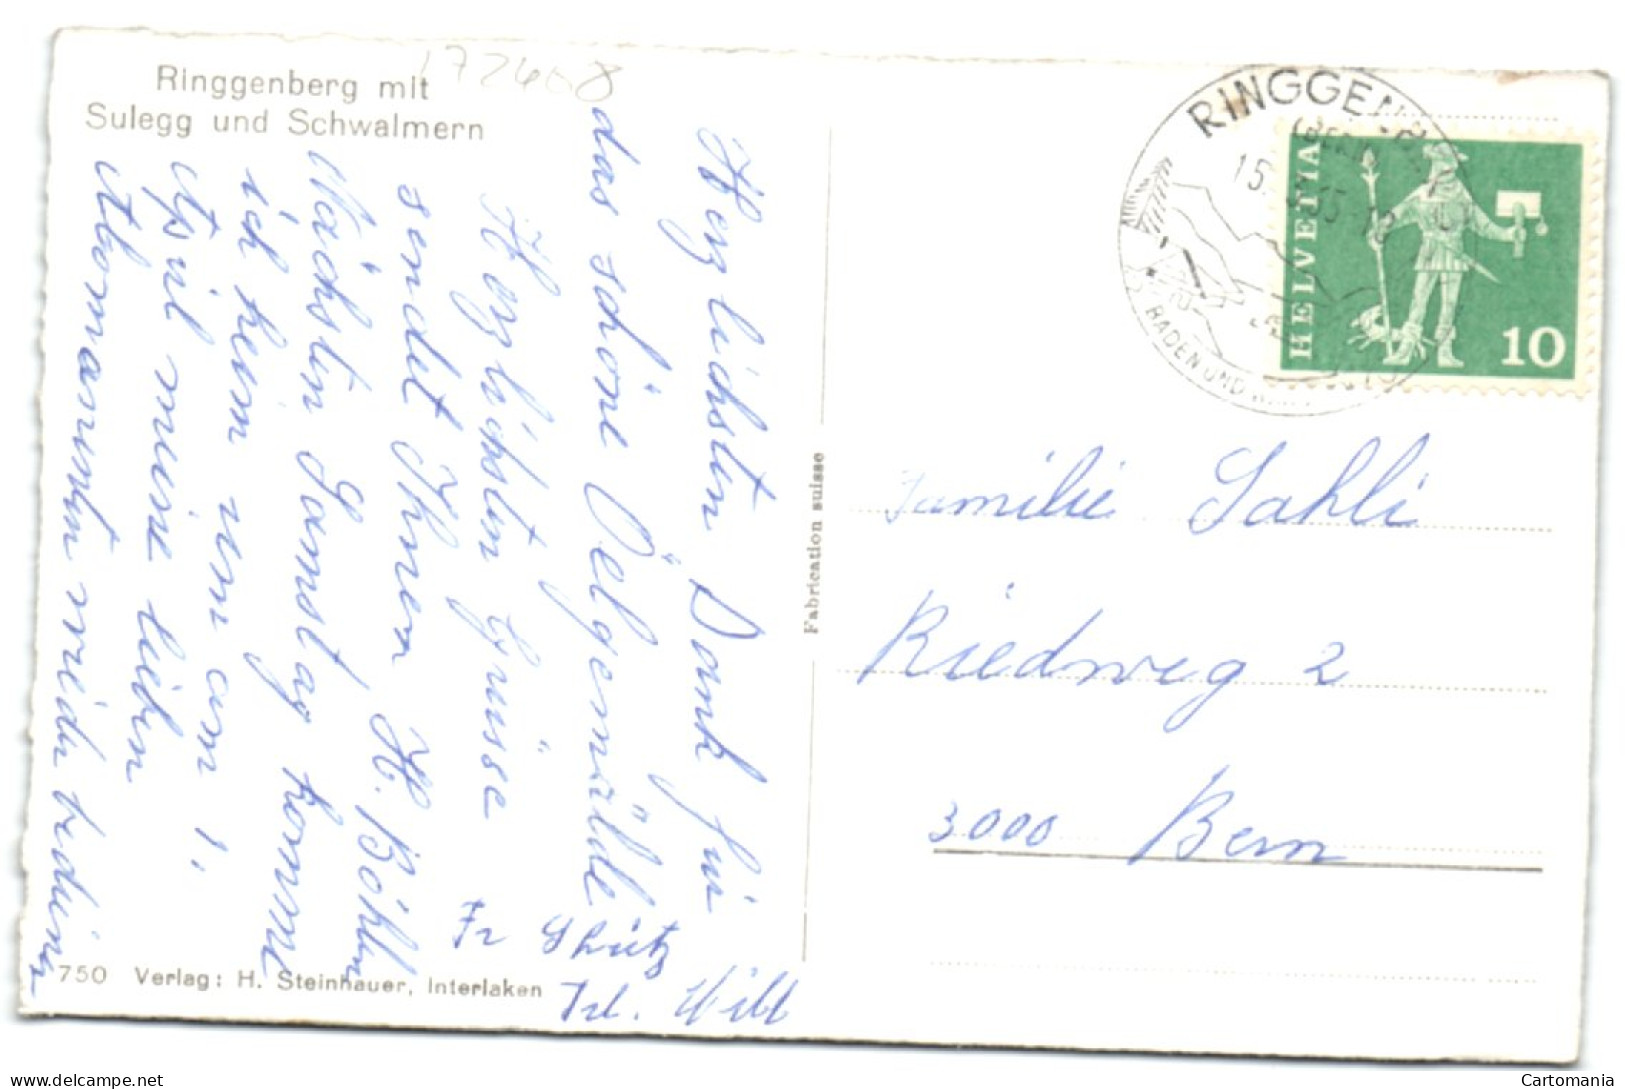 Ringgenberg mit
Sulegg und Schwalmern
172408
Herzlichsten Dank für
das schöne Oelgemälde
Herzlichsten Grüsse
sendet Ihnen H. Böhlen
Nächsten Samstag komme
ich heim um am 1.
meine lieben
wieder bedienen
Fr Schütz
Frl. Will
750 Verlag: H. Steinhauer, Interlaken
Fabrication suisse
RINGGENBERG
(BERN)
15.
BADEN UND
HELVETIA
10
Familie Sahli
Riedweg 2
3000 Bern
Cartomania